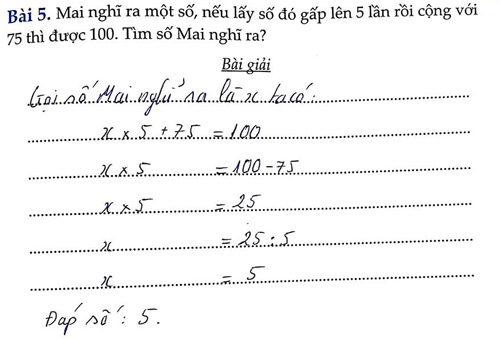 Bài 5. Mai nghĩ ra một số, nếu lấy số đó gấp lên 5 lần rồi cộng với
75 thì được 100. Tìm số Mai nghĩ ra?
Bài giải
Gọi số Mai nghĩ ra là x ta có:
x × 5 + 75 = 100
x × 5 = 100 - 75
x × 5 = 25
x = 25 : 5
x = 5
Đáp số: 5.